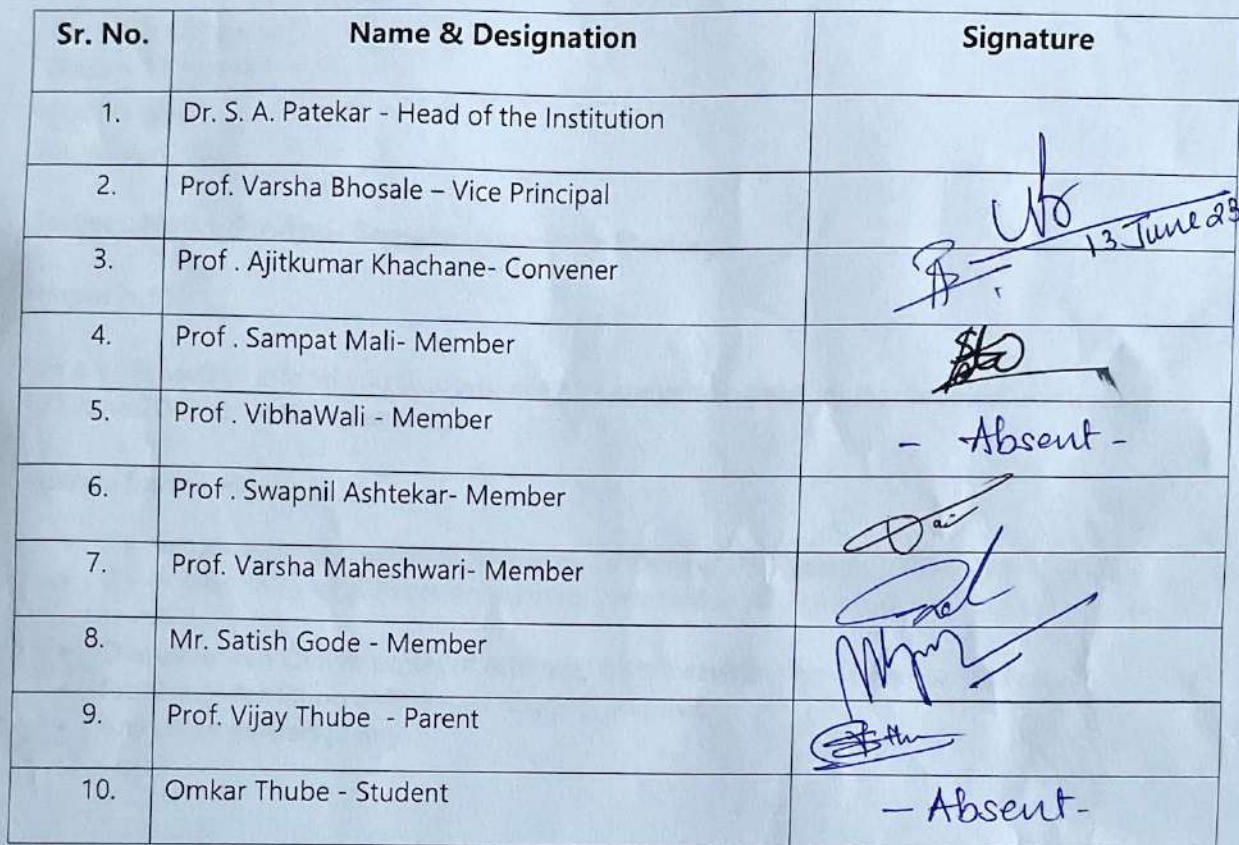 Sr. No. Name & Designation Signature
1. Dr. S. A. Patekar - Head of the Institution
2. Prof. Varsha Bhosale – Vice Principal
13 June 23
3. Prof . Ajitkumar Khachane- Convener
4. Prof . Sampat Mali- Member
5. Prof . VibhaWali - Member - Absent -
6. Prof . Swapnil Ashtekar- Member
7. Prof. Varsha Maheshwari- Member
8. Mr. Satish Gode - Member
9. Prof. Vijay Thube - Parent
10. Omkar Thube - Student - Absent-